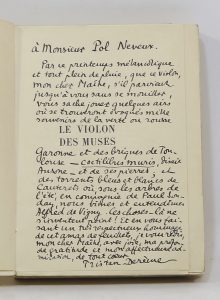 à Monsieur Pol Neveux.
Par ce printemps mélancolique
et tout plein de pluie, que ce violon,
mon cher Maître, s'il parvient
jusqu'à vous sans se mouiller,
vous sache jouer quelques airs
où se trouvent évoqués mille
souvenirs de la verte ou rousse
LE VIOLON
DES MUSES
Garonne et des briques de Tou-
louse — coctilibus muris, disait
Ausone — et de ses pierres, et
des torrents bleus et blancs de
Cauterets où, sous les arbres de
l'été, en compagnie de Paul
nous bûmes et entendîmes
Alfred de Vigny. Ces choses-là ne
s'inventent point! Et en vous fai-
sant un très respectueux hommage
de cet amas de feuillets, je vous
mon cher Maître, avec joie, ma profon-
de gratitude et mon affectueuse ad-
miration, de tout cœur.
Tristan Derème